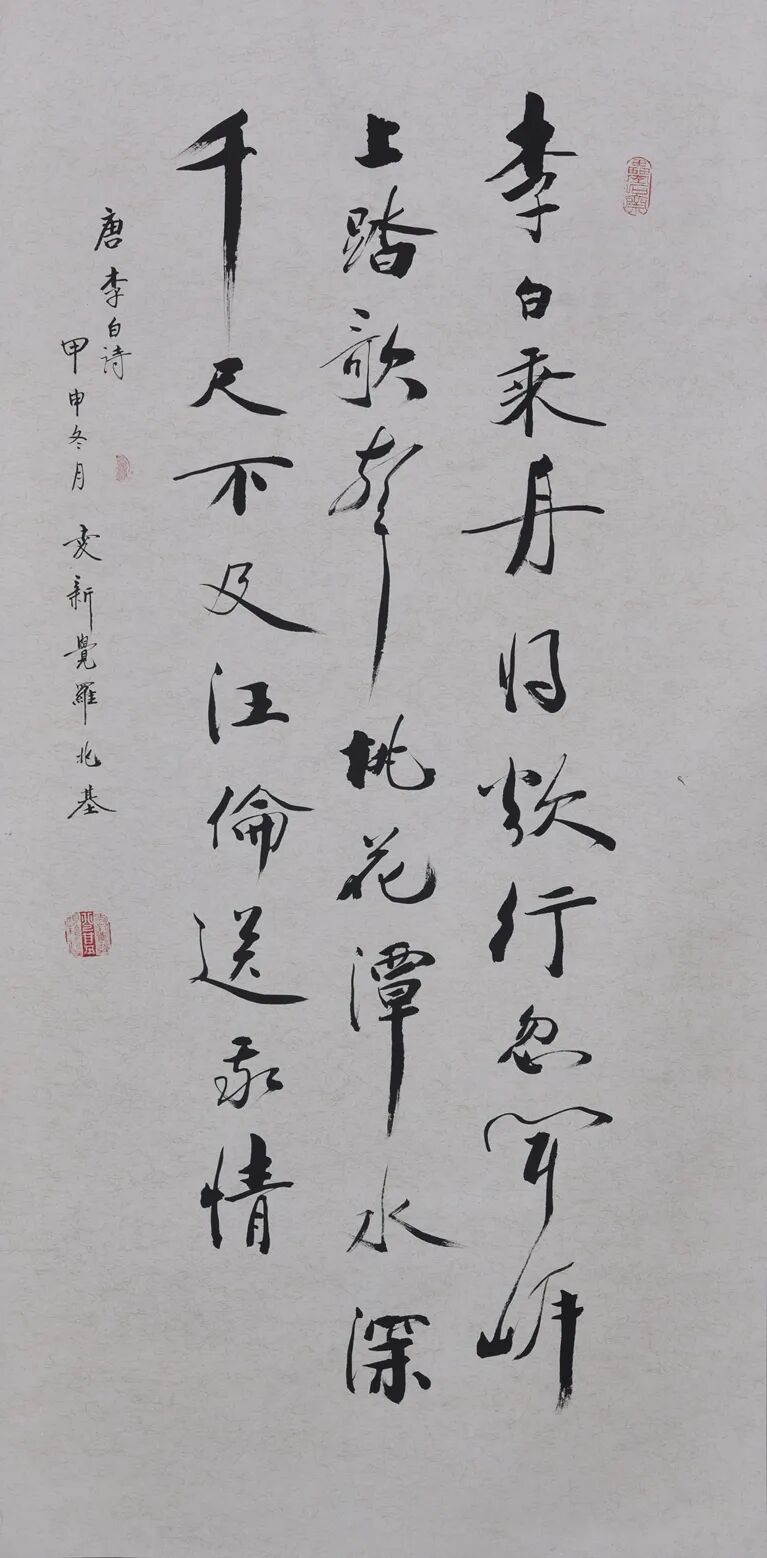 李白乘舟將欲行忽聞岸
上踏歌聲桃花潭水深
千尺不及汪倫送我情
唐李白诗
甲申冬月 爱新覺羅兆基